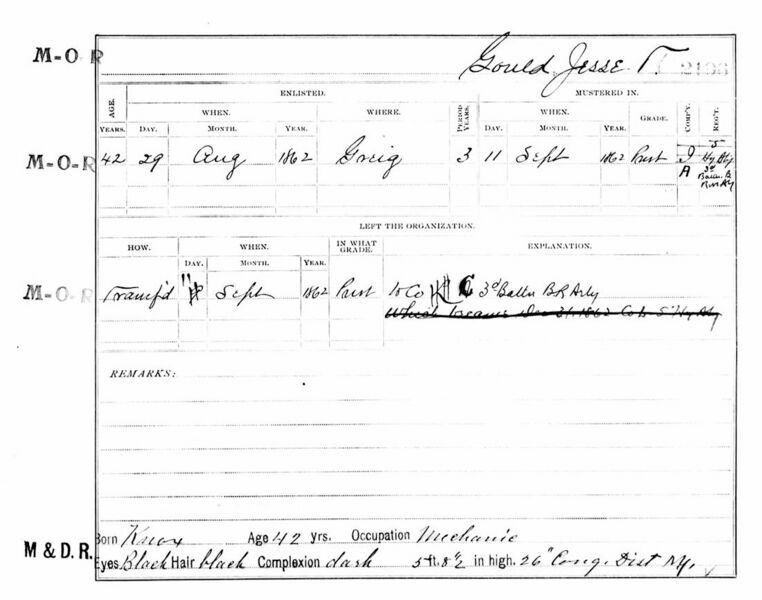 M-O-R
Gould, Jesse T.
AGE. ENLISTED. PERIOD MUSTERED IN. COMP'Y. REG'T.
WHEN. WHERE. WHEN. GRADE.
YEARS. DAY. MONTH. YEAR. YEARS. DAY. MONTH. YEAR.
5
M-O-R 42 29 Aug 1862 Greig 3 11 Sept 1862 Pvst I Hy Aty
A 3d
Battn. B
LEFT THE ORGANIZATION.
HOW. WHEN. IN WHAT GRADE. EXPLANATION.
DAY. MONTH. YEAR.
M-O-R Transf'd 11 Sept 1862 Pvst to Co C 3d Battn B R Arty
which became Dec 31. 1862 Co 5" Hy Aty
REMARKS:
Born Knox Age 42 yrs. Occupation Mechanic
M & D. R. Eyes Black Hair black Complexion dark 5 ft. 8 1/2 in high. 26" Cong. Dist NY.